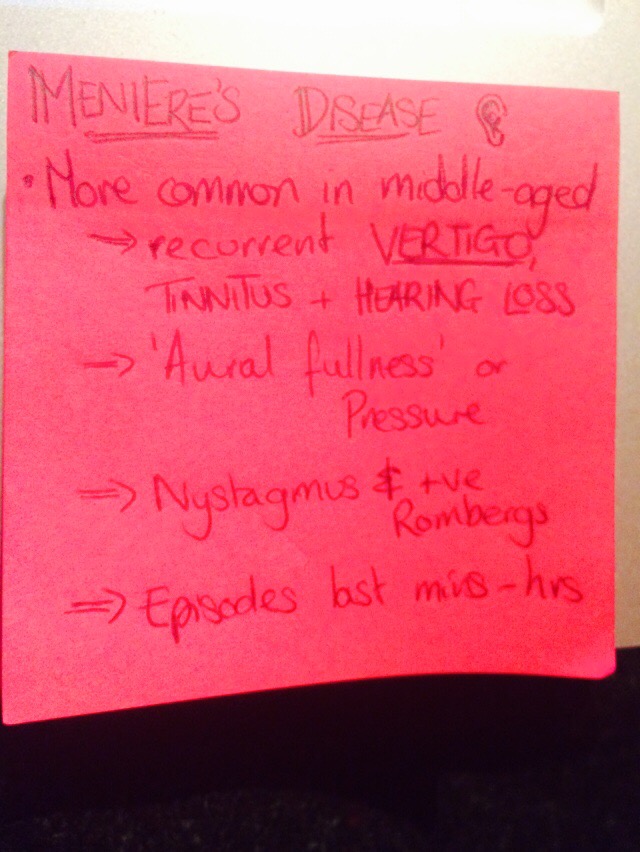 MENIERE'S DISEASE
• More common in middle-aged
⇒ recurrent VERTIGO,
TINNITUS + HEARING LOSS
→ 'Aural fullness' or
Pressure
⇒ Nystagmus & +ve
Rombergs
⇒ Episodes last mins-hrs